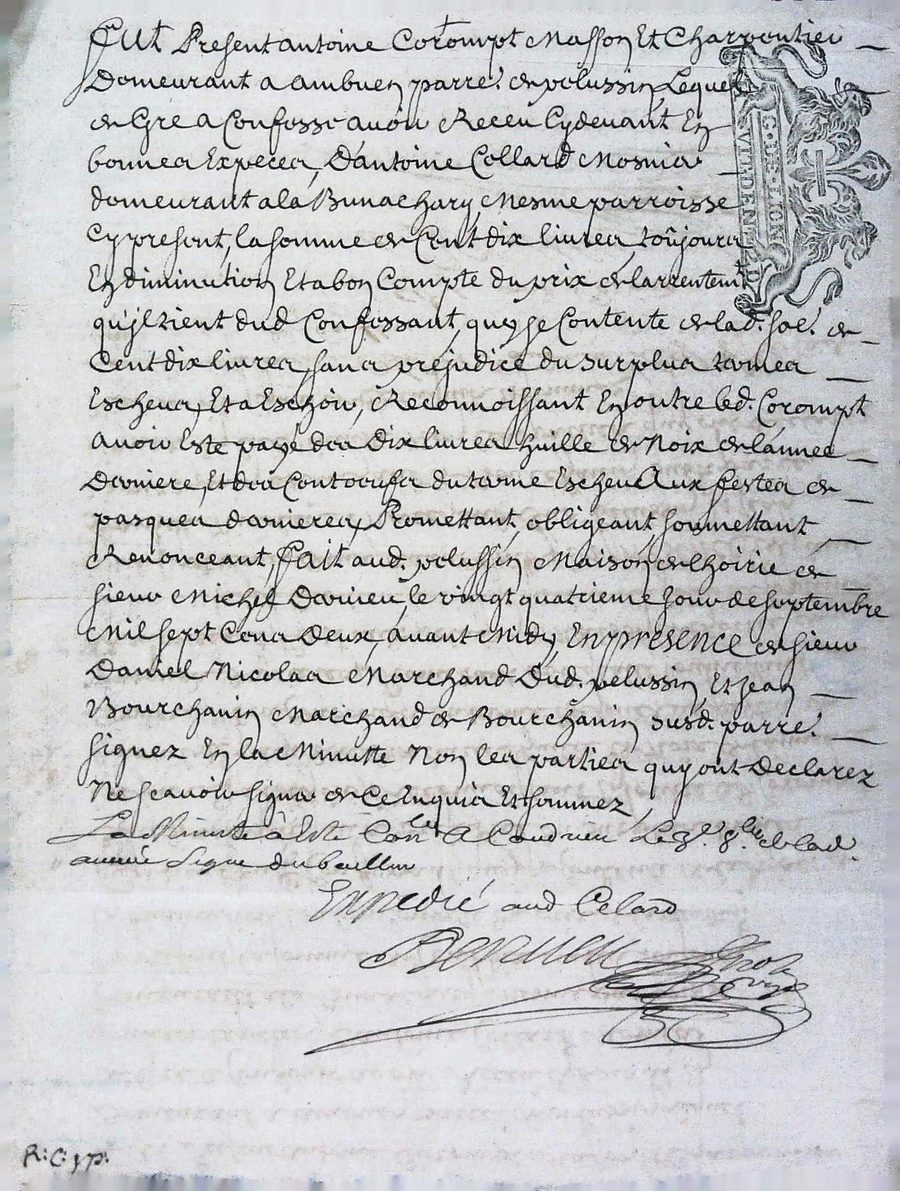 fut Present antoine Corompt Masson Et Charpentier
Demeurant a ambuen parre. de pelussin, Lequel
de Gre a Confessé avoir Receu Cydevant En
bonnes Especes, D'antoine Collard Mosnier
demeurant a la Bunachary, Mesme parroisse
Cypresent, la somme de Cent dix livres toûjours
En diminution Et a bon Compte du prix de larrentemt
qu'jl tient dud. Confessant, quy se Contente de lad. soe. de
Cent dix livres, sans préjudice du surplus termes
Escheus, Et a Eschoir, Reconnoissant En outre led. Corompt
avoir Esté payé des Dix livres huille de Noix de lannee
Derniere, Et des Cent oeufs du terme Escheu Aux festes de
pasques dernieres, Promettant, obligeant, soumettant
Renonceant, fait aud. pelussin Maison de lhoirie de
sieur Michel Dervieu, le vingt quatrieme jour de septembre
Mil sept Cens Deux, avant Midy, En presence de sieur
Daniel Nicolas Marchand Dud. pelussin Et Jean
Bourchanin Marchand de Bourchanin susd. parre.
signez En la Minutte Non les parties quy ont Declarez
Ne scavoir signer de Ce Enquis Et sommez
La Minute à Esté Conlee A Condrieu Le 8e. 8bre de lad.
année Signe
Expedié aud Colard
R: C: yp: